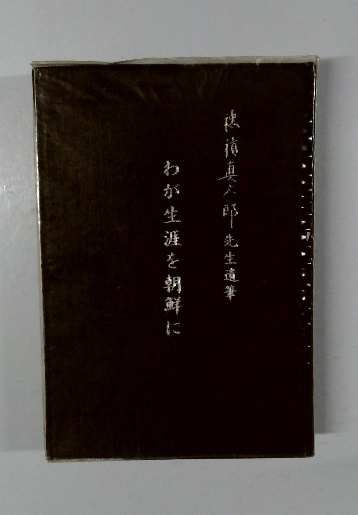 穂積真六郎先生遺筆
わが生涯を朝鮮に